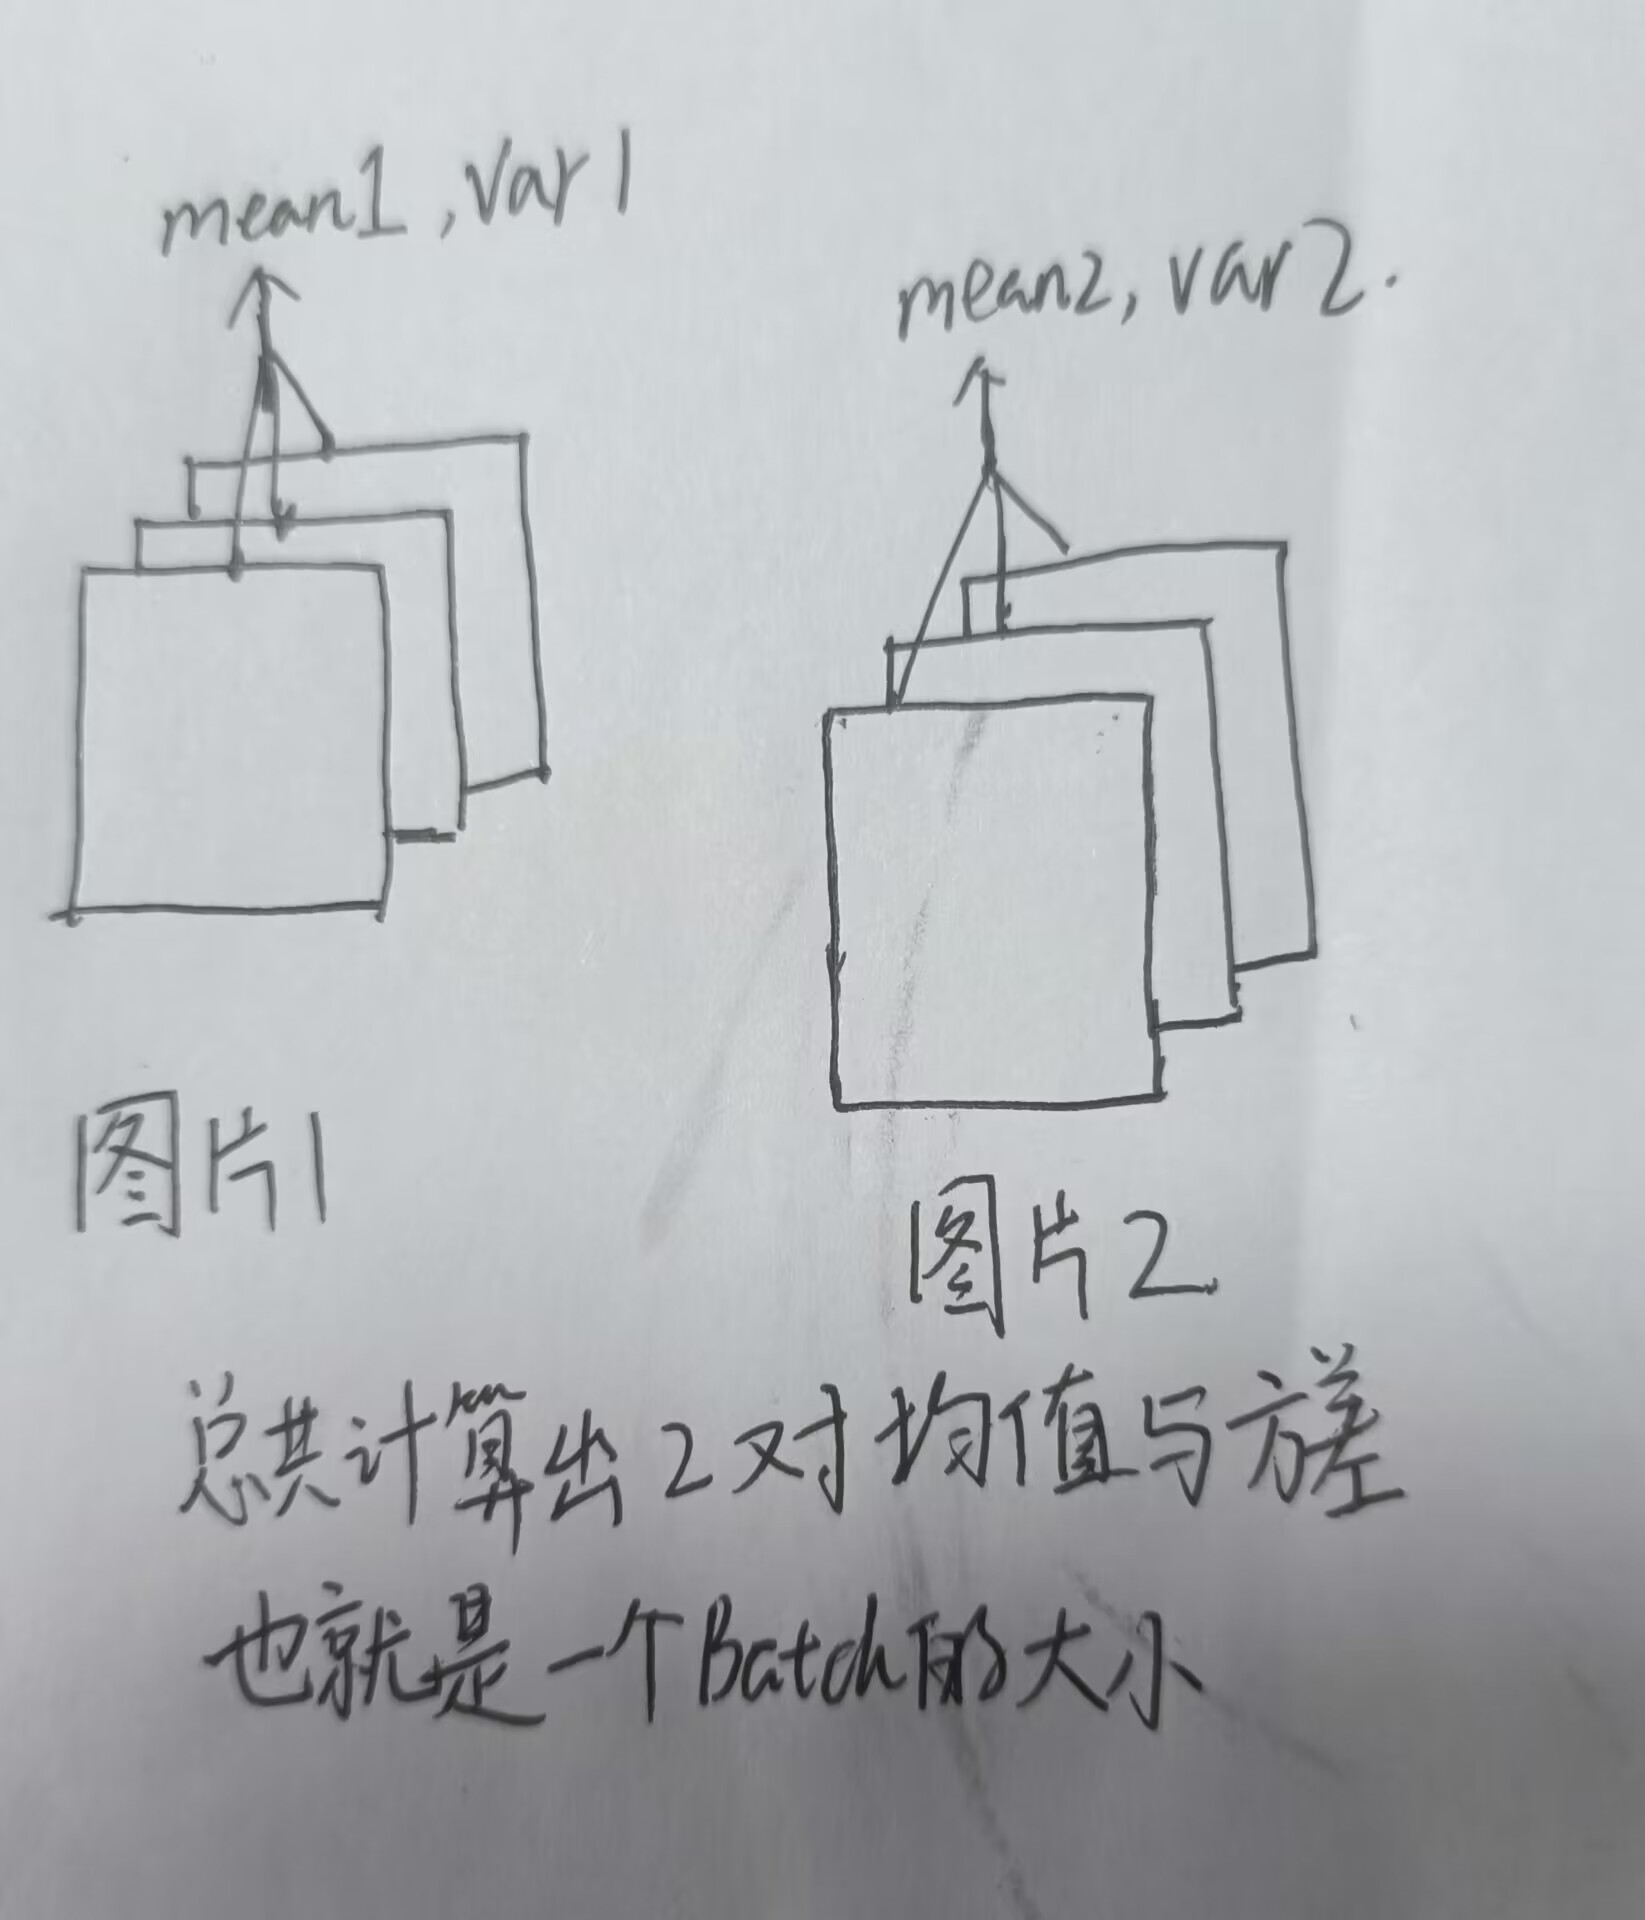 mean1,var1
mean2,var2.
图片1
图片2
总共计算出2对均值与方差
也就是一个Batch的大小